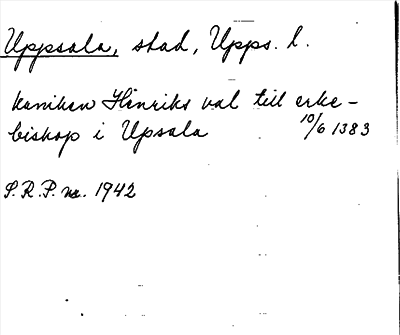 Uppsala, stad, Upps. l.
kaniken Hinriks val till erke-
biskop i Upsala 10/6 1383
S.R.P. nr. 1942